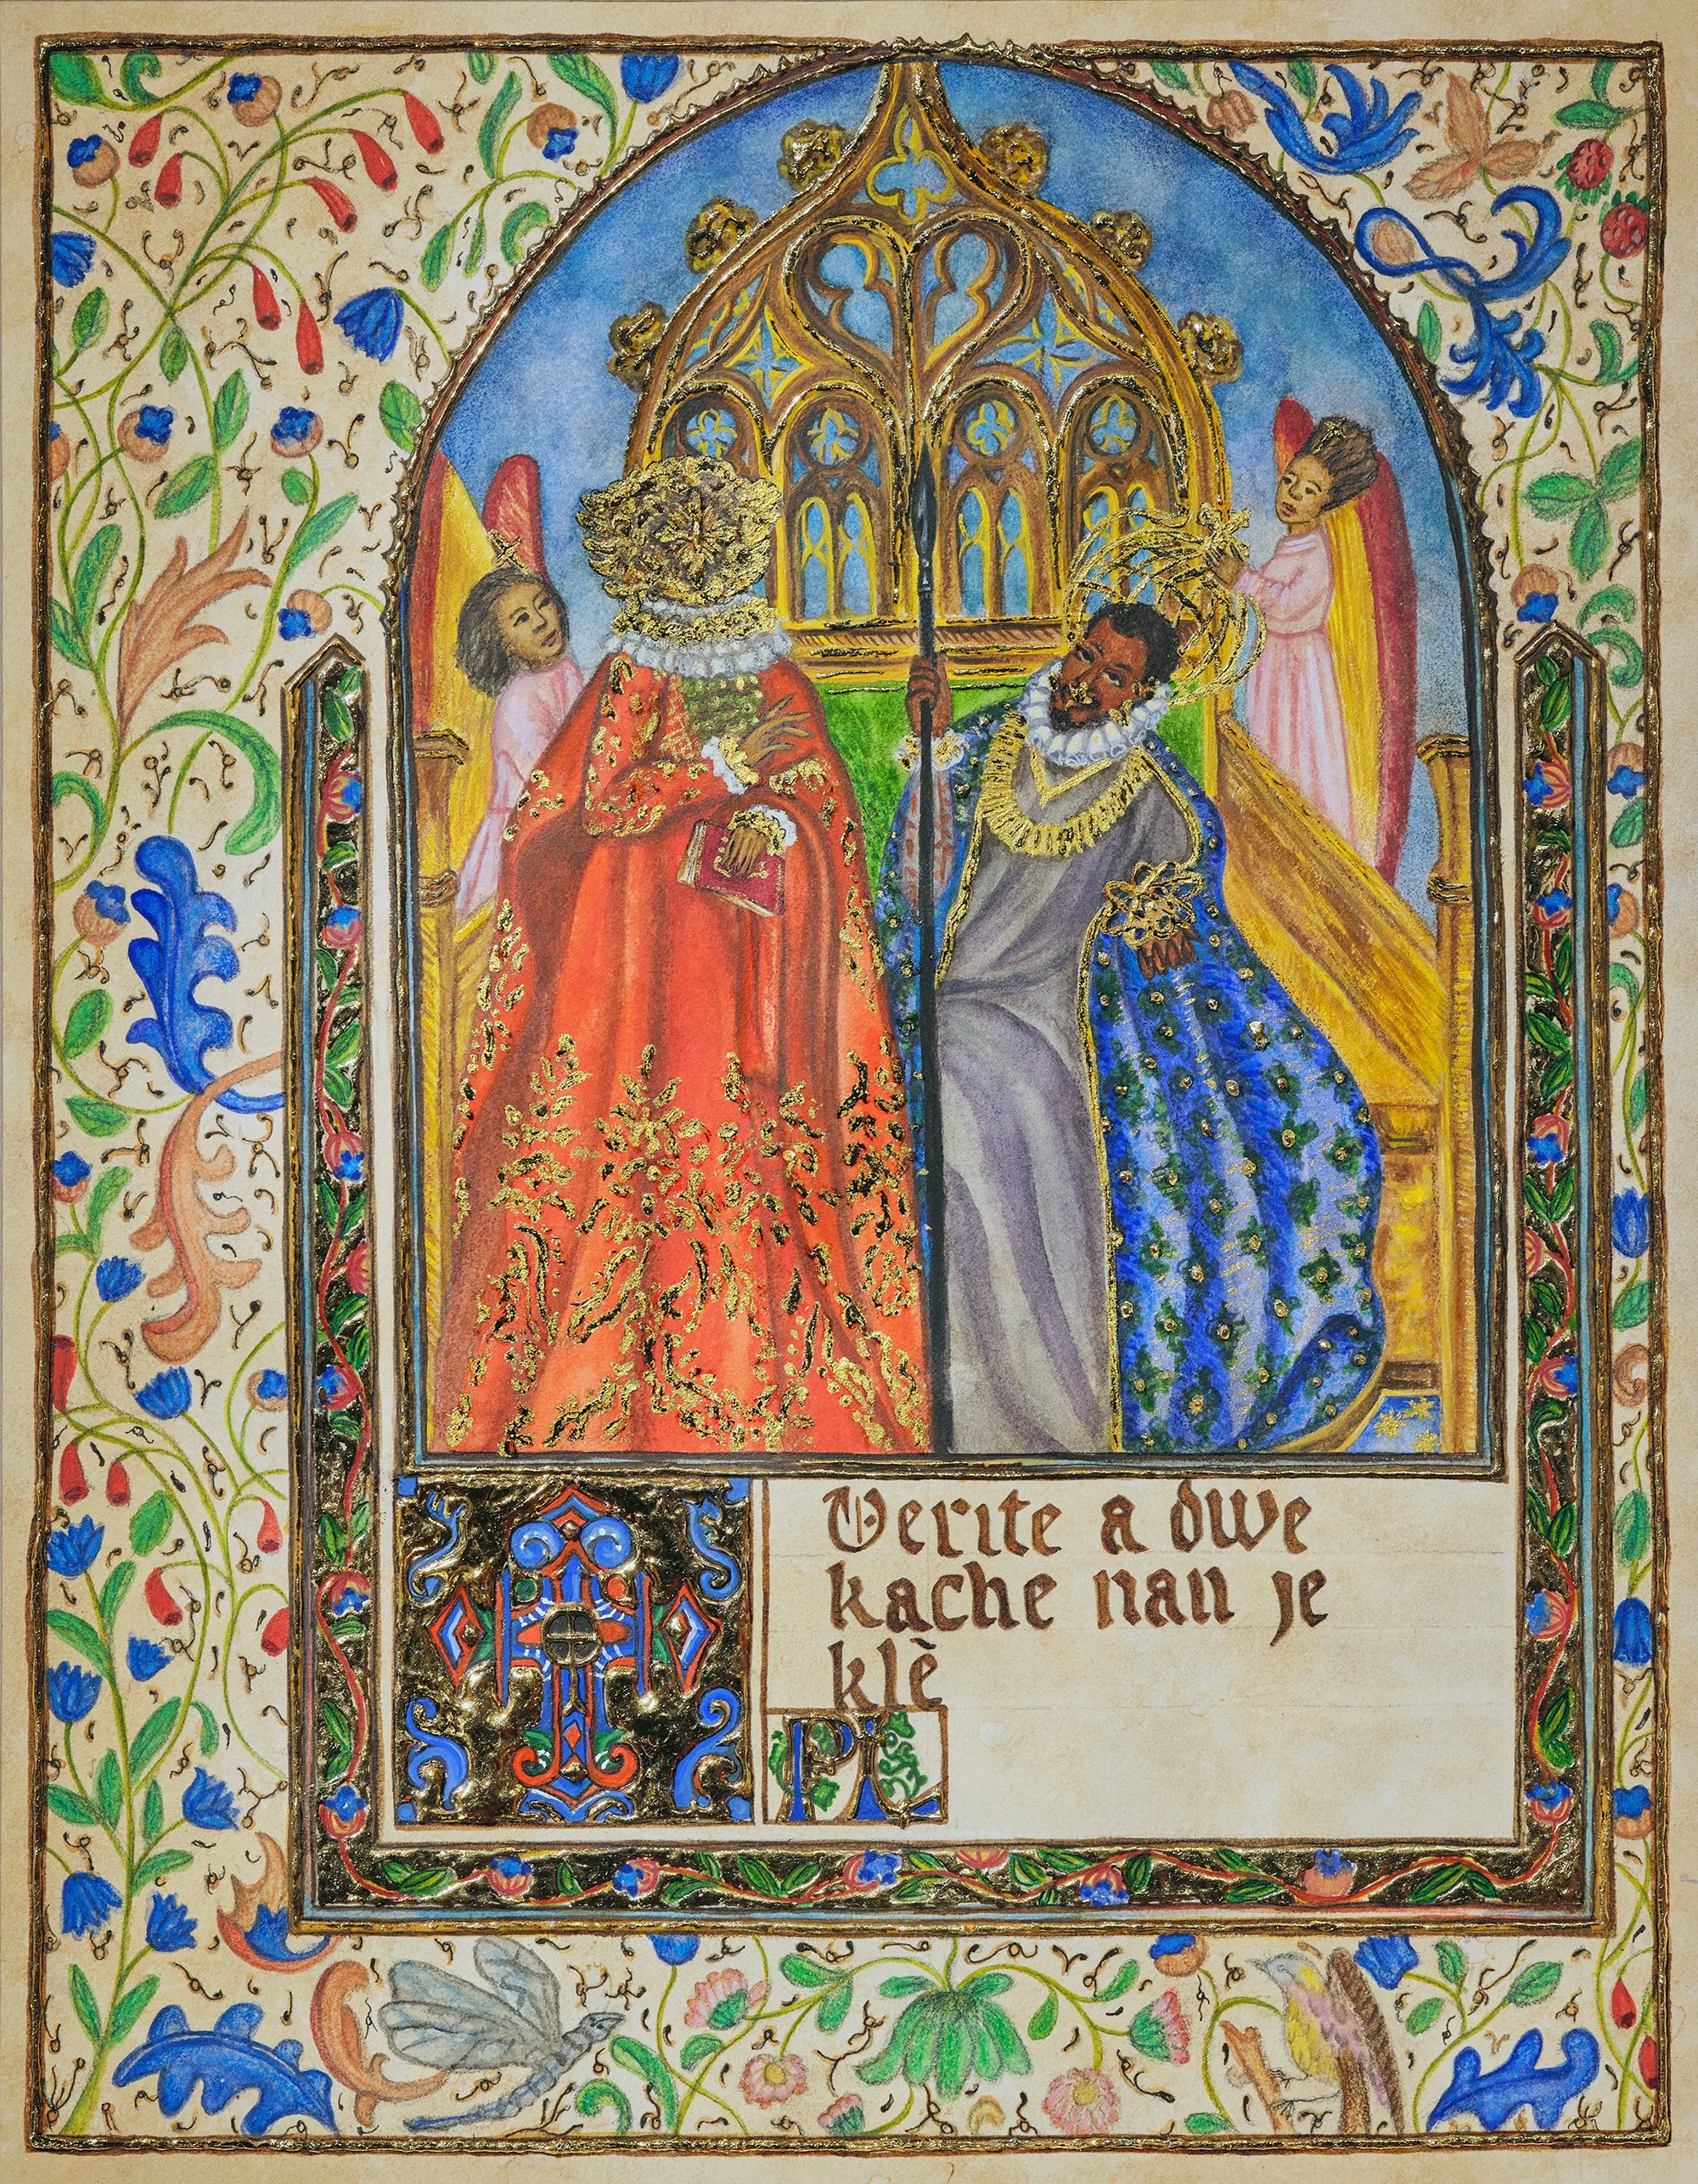 Verite a dwe
kache nan je
klè
PiL